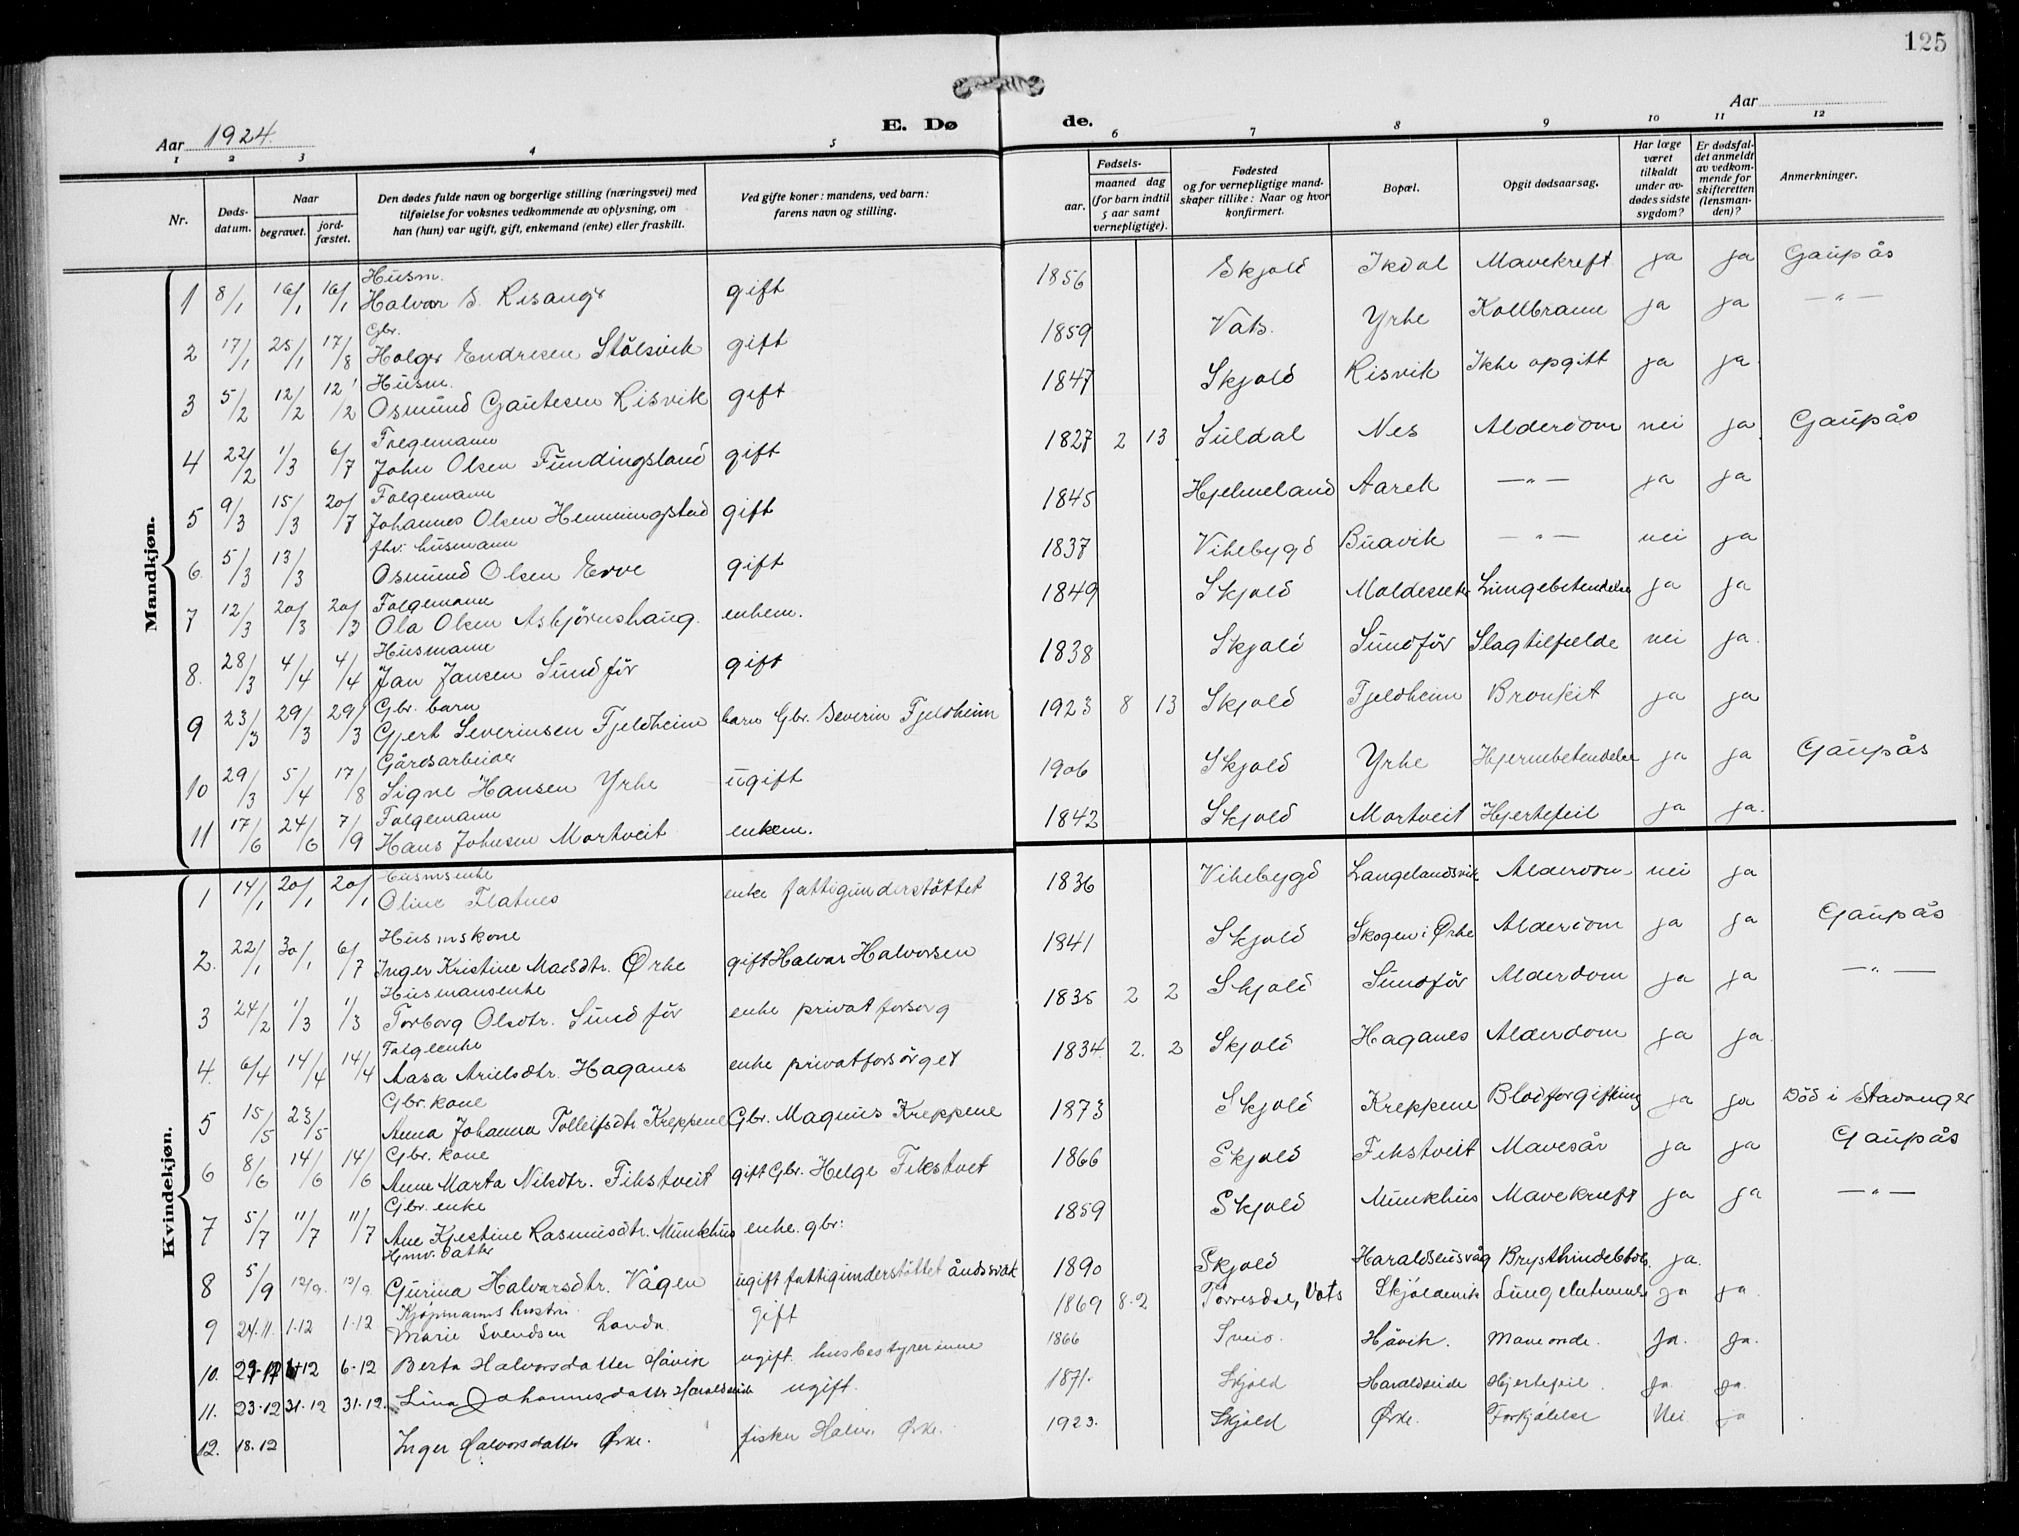 125
Aar 1924.
E. Dø
de.
Aar
1 2 3 4 5 6 7 8 9 10 11 12
Nr.
Døds-
datum.
Naar
begravet.
jord-
fæstet.
Den dødes fulde navn og borgerlige stilling (næringsvei) med
tilføielse for voksnes vedkommende av oplysning, om
han (hun) var ugift, gift, enkemand (enke) eller fraskilt.
Ved gifte koner: mandens, ved barn:
farens navn og stilling.
Fødsels-
aar.
maaned dag
(for barn indtil
5 aar samt
vernepligtige).
Fødested
og for vernepligtige mand-
skaper tillike: Naar og hvor
konfirmert.
Bopæl.
Opgit dødsaarsag.
Har læge
været
tilkaldt
under av-
dødes sidste
sygdom?
Er dødsfal-
det anmeldt
av vedkom-
mende for
skifteretten
(lensman-
den)?
Anmerkninger.
Mandkjøn.
Husm.
1 8/1 16/1 16/1 Halvor S. Risanger gift 1856 Skjold Ikdal Mavekreft ja ja Gaupås
Gbr.
2 17/1 25/1 17/8 Holger Endresen Stölsvik gift 1859 Vats. Yrke Kollbrann ja ja —"—
Husm.
3 5/2 12/2 12/2 Osmund Gautesen Risvik gift 1847 Skjold Risvik Ikke opgitt ja ja
Folgemann
4 22/2 1/3 6/7 John Olsen Fundingsland gift 1827 2 13 Suldal Nes Alderdom nei ja Gaupås
Folgemann
5 9/3 15/3 20/7 Johannes Olsen Hemmingstad gift 1845 Hjelmeland Aarek —"— ja ja
fhv. husmann
6. 5/3 13/3 Osmund Olsen Erve gift 1837 Vikebygd Buavik —"— nei ja
Folgemann
7 12/3 20/3 20/3 Ola Olsen Asbjörnshaug. enkem. 1849 Skjold Lungebetendelse ja ja
Husmann
8. 28/3 4/4 4/4 Jan Jansen Sundför gift 1838 Skjold Sundför Slagtilfælde nei ja.
Gbr. barn
9 23/3 29/3 29/3 Gjert Severinsen Fjeldheim barn Gbr. Severin Fjeldheim 1923 8 13 Skjold Fjeldheim Bronkit ja ja
Gårdsarbeider
10 29/3 5/4 17/8 Signe Hansen Yrke ugift 1906 Skjold Yrke Hjernebetendelse ja ja Gaupås
Folgemann
11 17/6 24/6 7/9 Hans Johnsen Mortveit enkem. 1842 Skjold Mortveit Hjertefeil ja ja.
Kvindekjøn.
Husmsenke
1 14/1 20/1 20/1 Oline Flatnes enke fattigunderstöttet 1836 Vikebygd Langelandsvik Alderdom nei ja
Husmskone
2. 22/1 30/1 6/7 Inger Kristine Madsdtr. Ørke gift Halvar Halvorsen 1841 Skjold Skogen i Ørke Alderdom ja ja Gaupås
Husmansenke
3 24/2 1/3 1/3 Torborg Olsdtr. Sundför enke privat forsorg 1835 2 2 Skjold Sundför Alderdom ja ja —"—
Folgeenke
4. 6/4 14/4 14/4 Aasa Arildsdtr. Haganes enke privatforsörget 1834. 2. 2 Skjold Haganes Alderdom ja ja.
Gbr. kone
5 15/5 23/5 Anna Johanna Tolleifsdtr Kreppene Gbr. Magnus Kreppene 1873 Skjold Kreppene Blodforgiftning ja ja Död i Stavanger
Gbr. kone
6 8/6 14/6 14/6 Anne Marta Nilsdtr. Fikstveit gift Gbr. Helge Fikstvet 1866 Skjold Fikstveit Mavesår ja ja Gaupås
Gbr. enke
7 5/7 11/7 11/7 Ane Kjestine Rasmusdtr. Munkhus enke. gbr: 1859 Skjold Munkhus Mavekræft ja ja —"—
Hmv. datter
8 5/9 12/9. 12/9 Gurina Halvarsdtr. Vågen ugift fattigunderstöttet åndssvak 1890 Skjold Haraldseusvåg ja.
Kjøpmanns hustru
9 24.11. 1.12 1.12 Marie Svendsen gift 1869 8.2 Torresdal, Vats Skjoldevik ja ja.
10. 6.12 Berta Halvorsdatter Håvik ugift husbestyrerinne 1866 Sveio. Håvik. Maveonde. ja. ja.
11. 23.12 31.12 31.12. Lina Johannesdatter Haraldseide ugift. 1871. Skjold Haraldseide Hjertefeil. ja. ja.
12. 18.12 Inger Halvorsdatter Ørke. fisker Halv. Ørke. 1923. Skjold Ørke. Forkjølelse Nei ja